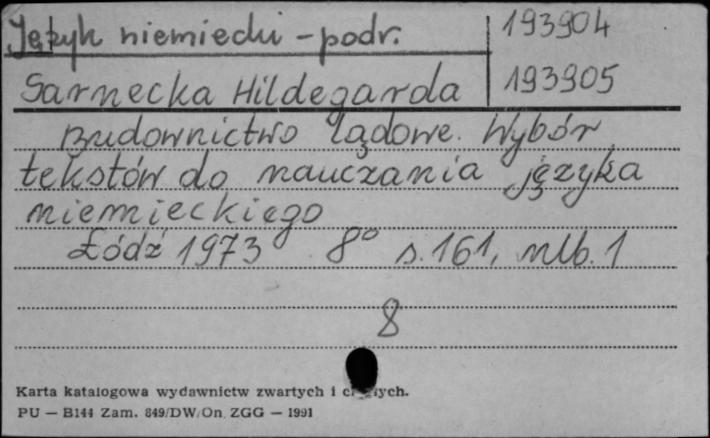 Język niemiecki - podr.
193904
Sarnecka Hildegarda
193905
Budownictwo lądowe. Wybór
tekstów do nauczania języka
niemieckiego
Łódź 1973 8° s. 161, nlb. 1
8
Karta katalogowa wydawnictw zwartych i ch.
PU — B144 Zam. 849/DW/On ZGG — 1991